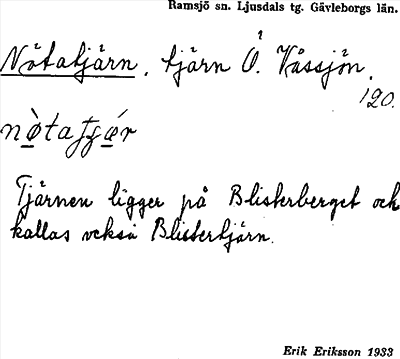 Ramsjö sn. Ljusdals tg. Gävleborgs län.
Nötatjärn, tjärn Ö. Vässjön,
120.
Tjärnen ligger på Blisterberget och
kallas också Blistertjärn.
Erik Eriksson 1933